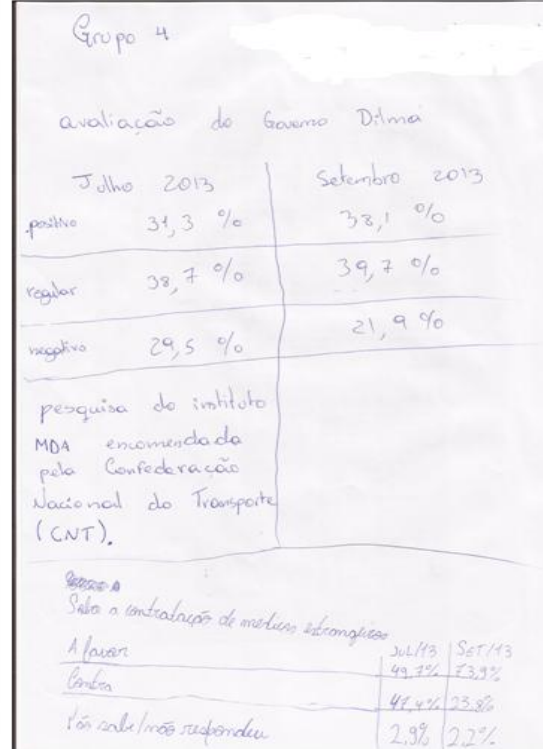 Grupo 4
avaliação do Governo Dilma
Julho 2013 Setembro 2013
positivo 31,3 % 38,1 %
regular 38,7 % 39,7 %
negativo 29,5 % 21,9 %
pesquisa do instituto
MDA encomendada
pela Confederação
Nacional do Transporte
(CNT).
Sobre a contratação de médicos estrangeiros
JUL/13 SET/13
A favor 49,7% 73,9%
Contra 47,4% 23,8%
Não sabe/não respondeu 2,9% 2,2%